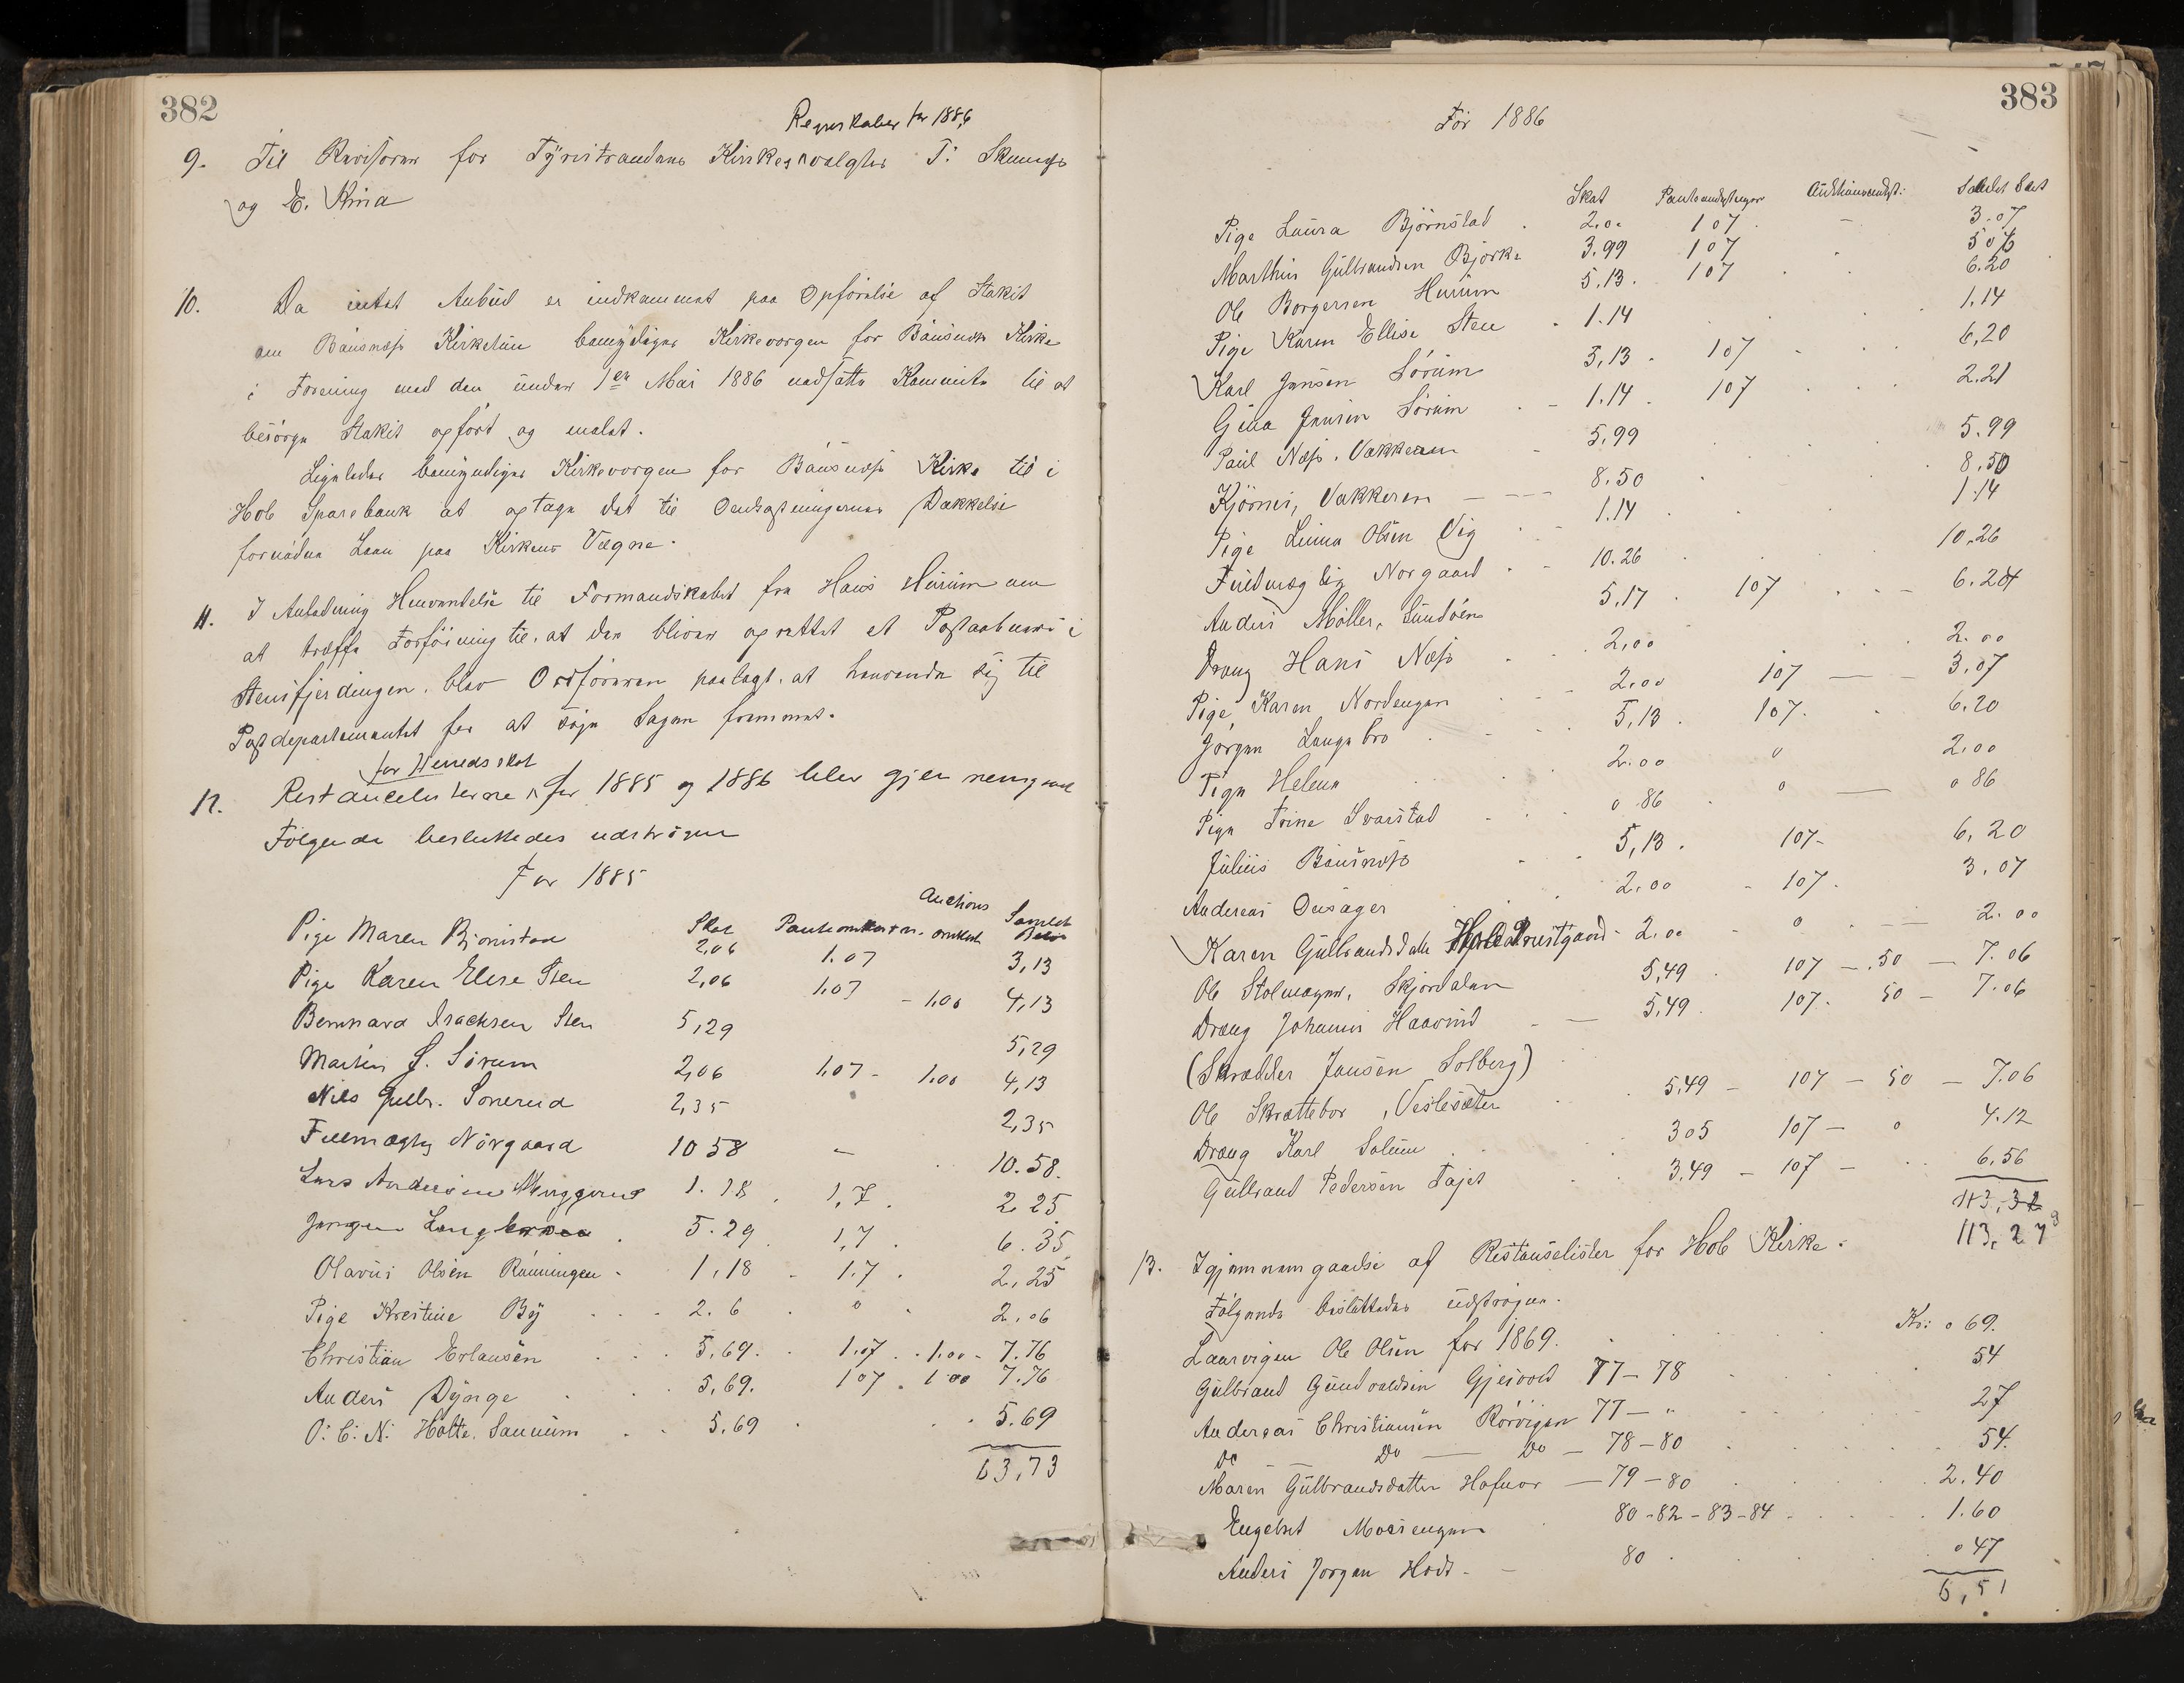 382
Regnskaber for 1886
9. Til Revisorer for Tyristrandens Kirkes valgtes T. 
og E. 
10. Da intet Anbud er indkommet paa Opførelse af Stakit
om Bønsnæs Kirketun bemyndiges Kirkevergen for Bønsnæs Kirke
i Forening med den under 1en Mai 1886 nedsatte Kommite til at
besørge Stakit opført og malet.
Ligeledes bemyndiges Kirkevorgen for Bønsnæs Kirke til i
Hole Sparebank at optage det til Omkostningernes Dækkelse
fornødne Laan paa Kirkens Vegne.
11. I Anledning Henvendelse til Formandskabet fra Hans Hurum om
at træffe Forføining til, at der bliver oprettet et Postaabneri i
Stensfjerdingen, blev Ordføreren paalagt, at henvende sig til
Postdepartementet for at søge Sagen fremmet.
for Herredsskat
12. Restancelisterne for 1885 og 1886 blev gjennemgaaet
Følgende besluttedes udstrøgne
For 1885
Skat Panteomkostn. Auctions omkostn. Samlet Beløb
Pige Maren Bjørnstad 2,06 1.07 3,13
Pige Karen Elise Sten 2,06 1,07 - 1,00 4,13
Bernhard Isachsen Sten 5,29 5,29
Martin J. Sørum 2,06 1,07 - 1,00 4,13
Nils Gulbr. Sonerud 2,35 2,35
Fuldmægtig Nørgaard 10 58 - 10.58.
Lars Andersen 1.18 . 1,7 . 2.25
Jørgen Langebro . 5.29 . 1,7 . 6.35
Olavus Olsen Rønningen - 1,18 - 1.7 . 2,25
Pige Kristine By 2.6 . 0 . 2,06
Christian Erlansen 5,69. 1.07 . 1.00 - 7.76
Anders Dynge 5,69. 107 . 1 00 7.76
O: C: N: Holte, Sønnum 5,69 5.69
63,73
383
For 1886
Skat Panteomkostninger Auktionsomkst: Samlet Belt
Pige Laura Bjørnstad 2,00 107 - 3.07
Marthin Gulbrandsen Bjørke 3.99 107 5 06
Ole Borgersen Hurum 5.13. 107 6.20
Pige Karen Ellise Sten 1.14 1,14
Karl Jensen Sørum 5,13 - 107 6,20
Gina Jensen Sørum 1.14 . 107 2.21
Paul Næss, Vakkeren 5,99 5.99
Kjørner, Vakkeren 8.50 8.50
Pige Lina Olsen Vig 1.14 1.14
Fuldmægtig Norgaard 10.26 10.26
Anders Møller, Sundøen 5,17 107 6.24
Dreng Hans Næss 2,00 2.00
Pige Karen Nordengen 2.00 107 3.07
Jørgen Langebro 5,13 . 107. 6.20
Pige Helena 2.00 0 2.00
Pige Trine Svarstad 0.86 0 0 86
Julius Bønsnæs 5,13 . 107- 6,20
Andreas Onsager 2,00 - 107. 3.07
Karen Gulbrandsdatter Hole Prestgaard 2.00 0 2.00
Ole Stolmager, Skjørdalen 5,49 . 107 - .50 - 7.06
Dreng Johannes Haavind 5,49 . 107. 50 - 7.06
(Skrædder Jansen Solberg)
Ole Skrattebor, Veslesæter 5.49 - 107 - 50 - 7.06
Dreng Karl Solum 305 107 - 0 4.12
Gulbrand Pedersen Fajet 5,49 - 107 - 6,56
113,32
113,27
13. Igjennemgaaelse af Restanselister for Hole Kirke.
Følgende besluttedes udstrøgne.
Laarvigen Ole Olsen for 1869. Kr: 0 69.
Gulbrand Gundvaldsen Gjesvold 77-78 54
Andreas Christiansen Rørvigen 77- " 27
Do Do Do - 78-80 54.
Maren Gulbrandsdatter Hafnor - 79-80 2.40
Engebret Moesengen 80-82-83-84 1.60
Anders Jørgen Hode 80 . 0 47
6,51